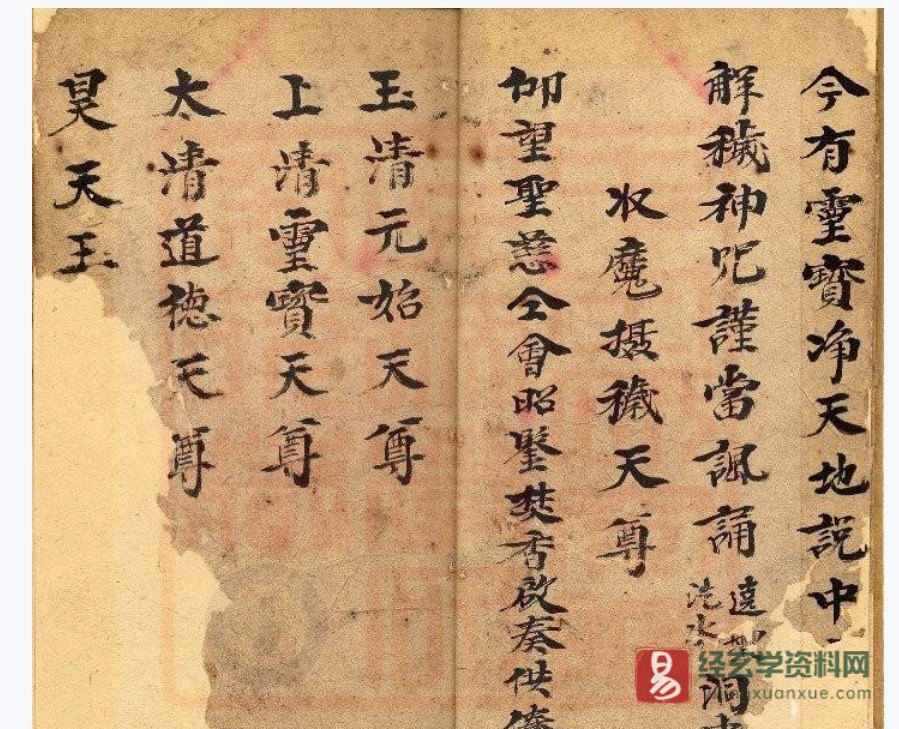 今有靈寳净天地説中
解穢神咒謹當諷誦
洗水
洞
收魔摄穢天尊
仰望聖慈仝會昭鑒焚香啟奏供
玉清元始天尊
上清靈寳天尊
太清道德天尊
昊天玉
易
经玄学资料网
jingxuanxue.com